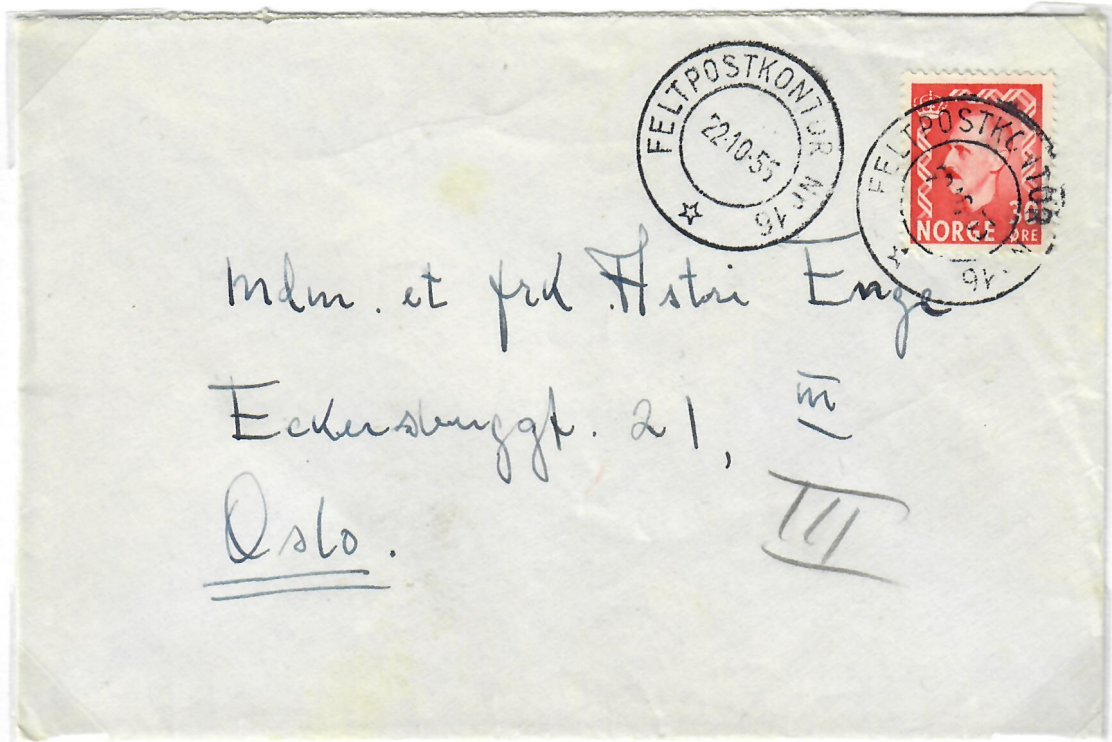 FELTPOSTKONTOR Nr. 16
22·10-55
FELTPOSTKONTOR Nr. 16
30
NORGE ØRE
Mdm. et frk Astri Enge
Eckersbuggt. 21, III
III
Oslo.